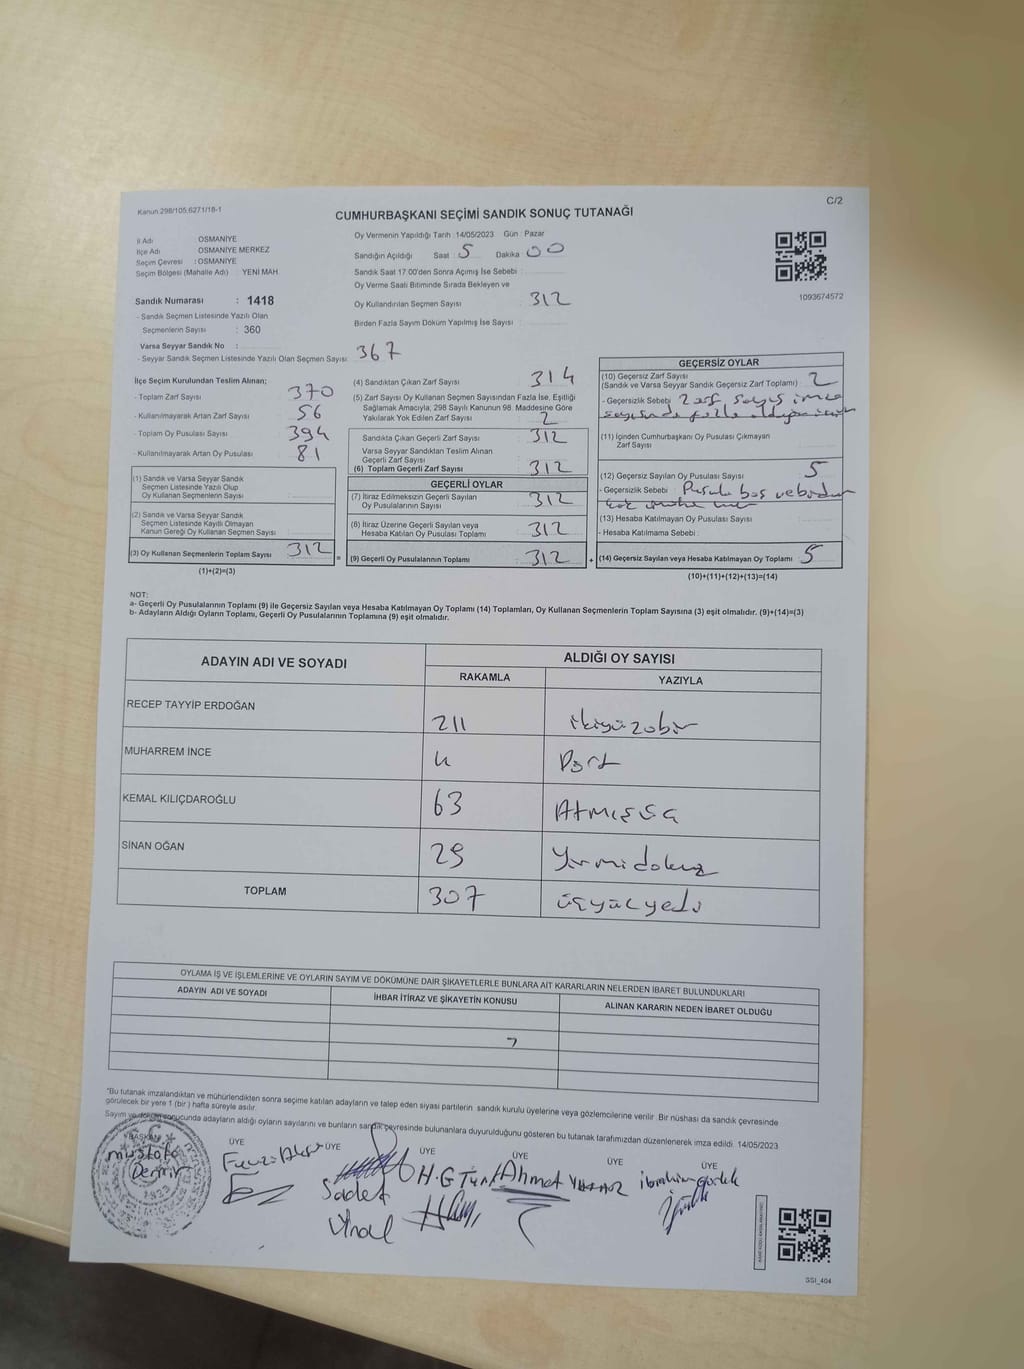 Kanun 298/105,6271/18-1
C/2
CUMHURBAŞKANI SEÇİMİ SANDIK SONUÇ TUTANAĞI
İl Adı OSMANİYE
İlçe Adı OSMANİYE MERKEZ
Seçim Çevresi : OSMANİYE
Seçim Bölgesi (Mahalle Adı) : YENİ MAH.
Sandık Numarası : 1418
- Sandık Seçmen Listesinde Yazılı Olan
Seçmenlerin Sayısı : 360
Varsa Seyyar Sandık No :
- Seyyar Sandık Seçmen Listesinde Yazılı Olan Seçmen Sayısı: 367
Oy Vermenin Yapıldığı Tarih :14/05/2023 Gün : Pazar
Sandığın Açıldığı Saat : 5 Dakika : 00
Sandık Saat 17.00'den Sonra Açımış İse Sebebi :
Oy Verme Saati Bitiminde Sırada Bekleyen ve
Oy Kullandırılan Seçmen Sayısı : 312
Birden Fazla Sayım Döküm Yapılmış İse Sayısı :
1093674572
İlçe Seçim Kurulundan Teslim Alınan;
- Toplam Zarf Sayısı : 370
- Kullanılmayarak Artan Zarf Sayısı : 56
- Toplam Oy Pusulası Sayısı : 394
- Kullanılmayarak Artan Oy Pusulası : 81
(1) Sandık ve Varsa Seyyar Sandık
Seçmen Listesinde Yazılı Olup
Oy Kullanan Seçmenlerin Sayısı :
(2) Sandık ve Varsa Seyyar Sandık
Seçmen Listesinde Kayıtlı Olmayan
Kanun Gereği Oy Kullanan Seçmen Sayısı :
(3) Oy Kullanan Seçmenlerin Toplam Sayısı : 312 =
(1)+(2)=(3)
(4) Sandıktan Çıkan Zarf Sayısı : 314
(5) Zarf Sayısı Oy Kullanan Seçmen Sayısından Fazla İse, Eşitliği
Sağlamak Amacıyla; 298 Sayılı Kanunun 98. Maddesine Göre
Yakılarak Yok Edilen Zarf Sayısı : 2
Sandıkta Çıkan Geçerli Zarf Sayısı : 312
Varsa Seyyar Sandıktan Teslim Alınan
Geçerli Zarf Sayısı
(6) Toplam Geçerli Zarf Sayısı : 312
GEÇERLİ OYLAR
(7) İtiraz Edilmeksizin Geçerli Sayılan
Oy Pusulalarının Sayısı : 312
(8) İtiraz Üzerine Geçerli Sayılan veya
Hesaba Katılan Oy Pusulası Toplamı : 312
(9) Geçerli Oy Pusulalarının Toplamı : 312 +
GEÇERSİZ OYLAR
(10) Geçersiz Zarf Sayısı
(Sandık ve Varsa Seyyar Sandık Geçersiz Zarf Toplamı) : 2
- Geçersizlik Sebebi : 2 zarf sayısı imza
sayısında fazla
(11) İçinden Cumhurbaşkanı Oy Pusulası Çıkmayan
Zarf Sayısı :
(12) Geçersiz Sayılan Oy Pusulası Sayısı : 5
- Geçersizlik Sebebi : Pusula boş
(13) Hesaba Katılmayan Oy Pusulası Sayısı :
- Hesaba Katılmama Sebebi :
(14) Geçersiz Sayılan veya Hesaba Katılmayan Oy Toplamı : 5
(10)+(11)+(12)+(13)=(14)
NOT:
a- Geçerli Oy Pusulalarının Toplamı (9) ile Geçersiz Sayılan veya Hesaba Katılmayan Oy Toplamı (14) Toplamları, Oy Kullanan Seçmenlerin Toplam Sayısına (3) eşit olmalıdır. (9)+(14)=(3)
b- Adayların Aldığı Oyların Toplamı, Geçerli Oy Pusulalarının Toplamına (9) eşit olmalıdır.
ADAYIN ADI VE SOYADI ALDIĞI OY SAYISI
RAKAMLA YAZIYLA
RECEP TAYYİP ERDOĞAN 211 ikiyüzobir
MUHARREM İNCE 4 Dört
KEMAL KILIÇDAROĞLU 63 Atmışüç
SİNAN OĞAN 29 Yirmidokuz
TOPLAM 307 üçyüzyedi
OYLAMA İŞ VE İŞLEMLERİNE VE OYLARIN SAYIM VE DÖKÜMÜNE DAİR ŞİKAYETLERLE BUNLARA AİT KARARLARIN NELERDEN İBARET BULUNDUKLARI
ADAYIN ADI VE SOYADI İHBAR İTİRAZ VE ŞİKAYETİN KONUSU ALINAN KARARIN NEDEN İBARET OLDUĞU
"Bu tutanak imzalandıktan ve mühürlendikten sonra seçime katılan adayların ve talep eden siyasi partilerin sandık kurulu üyelerine veya gözlemcilerine verilir. Bir nüshası da sandık çevresinde
görülecek bir yere 1 (bir) hafta süreyle asılır.
Sayım ve döküm sonucunda adayların aldığı oyların sayılarını ve bunların sandık çevresinde bulunanlara duyurulduğunu gösteren bu tutanak tarafımızdan düzenlenerek imza edildi. 14/05/2023
BAŞKAN ÜYE ÜYE ÜYE ÜYE ÜYE ÜYE
Mustafa
Demir
Sadet
Ünal
H.G Türk
Ahmet Yılmaz
ibrahim
SSI_404